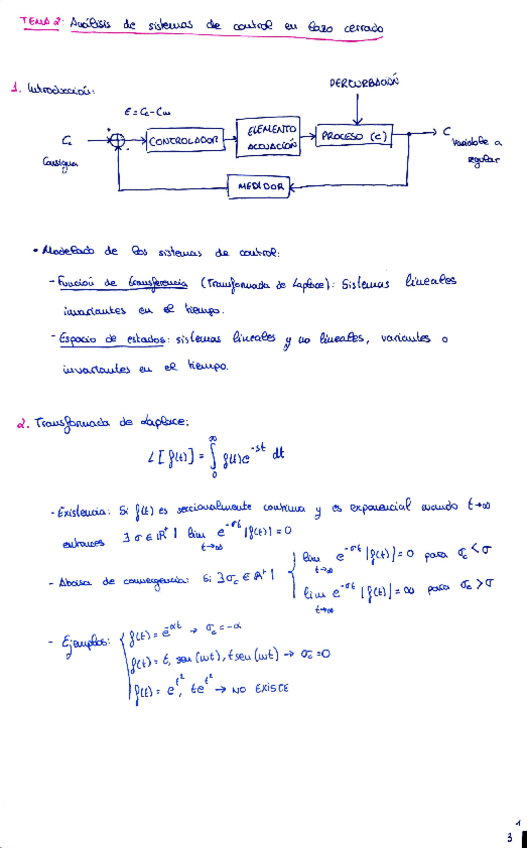 TEMA 2: Análisis de sistemas de control en lazo cerrado
1. Introducción:
PERTURBACIÓN
E = Cc - Cm
Cc
Consigna
+
-
CONTROLADOR
ELEMENTO
ACTUACIÓN
PROCESO (C)
C
Variable a
regular
MEDIDOR
• Modelado de los sistemas de control:
- Función de transferencia (Transformada de Laplace): Sistemas lineales
invariantes en el tiempo.
- Espacio de estados: sistemas lineales y no lineales, variantes o
invariantes en el tiempo.
2. Transformada de Laplace:
L[f(t)] = ∫₀^∞ f(t)e^{-st} dt
- Existencia: Si f(t) es seccionalmente continua y es exponencial cuando t→∞
entonces ∃ σ ∈ ℝ⁺ | lim_{t→∞} e^{-σt} |f(t)| = 0
- Abcisa de convergencia: Si ∃ σc ∈ ℝ⁺ | { lim_{t→∞} e^{-σt} |f(t)| = 0 para σc < σ
lim_{t→∞} e^{-σt} |f(t)| = ∞ para σc > σ
- Ejemplos: { f(t) = e^{-αt} → σc = -α
f(t) = t, sen(ωt), t sen(ωt) → σc = 0
f(t) = e^{t²}, te^{t²} → NO EXISTE
1
3